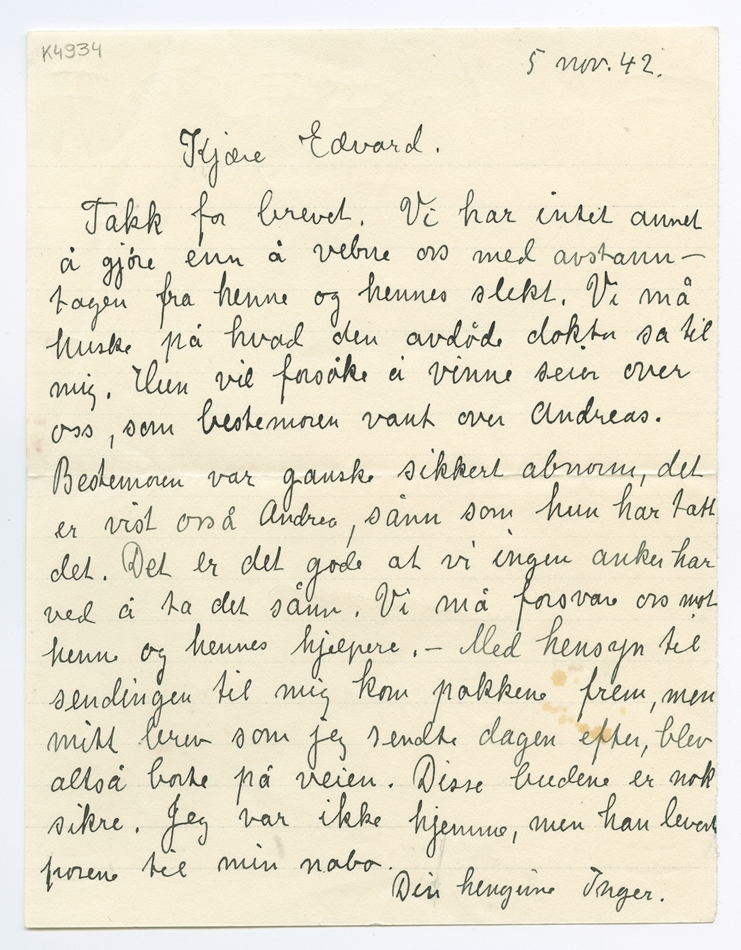 K4934
5 nov. 42.
Kjære Edvard.
Takk for brevet. Vi har intet annet
å gjøre enn å vebne oss med avstann-
tagen fra henne og hennes slekt. Vi må
huske på hvad den avdøde doktor sa til
mig. Hun vil forsøke å vinne seier over
oss, som bestemoren vant over Andreas.
Bestemoren var ganske sikkert abnorm, det
er vist også Andrea, sånn som hun har tatt
det. Det er det gode at vi ingen anker har
ved å ta det sånn. Vi må forsvare oss mot
henne og hennes hjelpere. - Med hensyn til
sendingen til mig kom pakkene frem, men
mitt brev som jeg sendte dagen efter, blev
altså borte på veien. Disse budene er nok
sikre. Jeg var ikke hjemme, men han levert
posene til min nabo.
Din hengivne Inger.